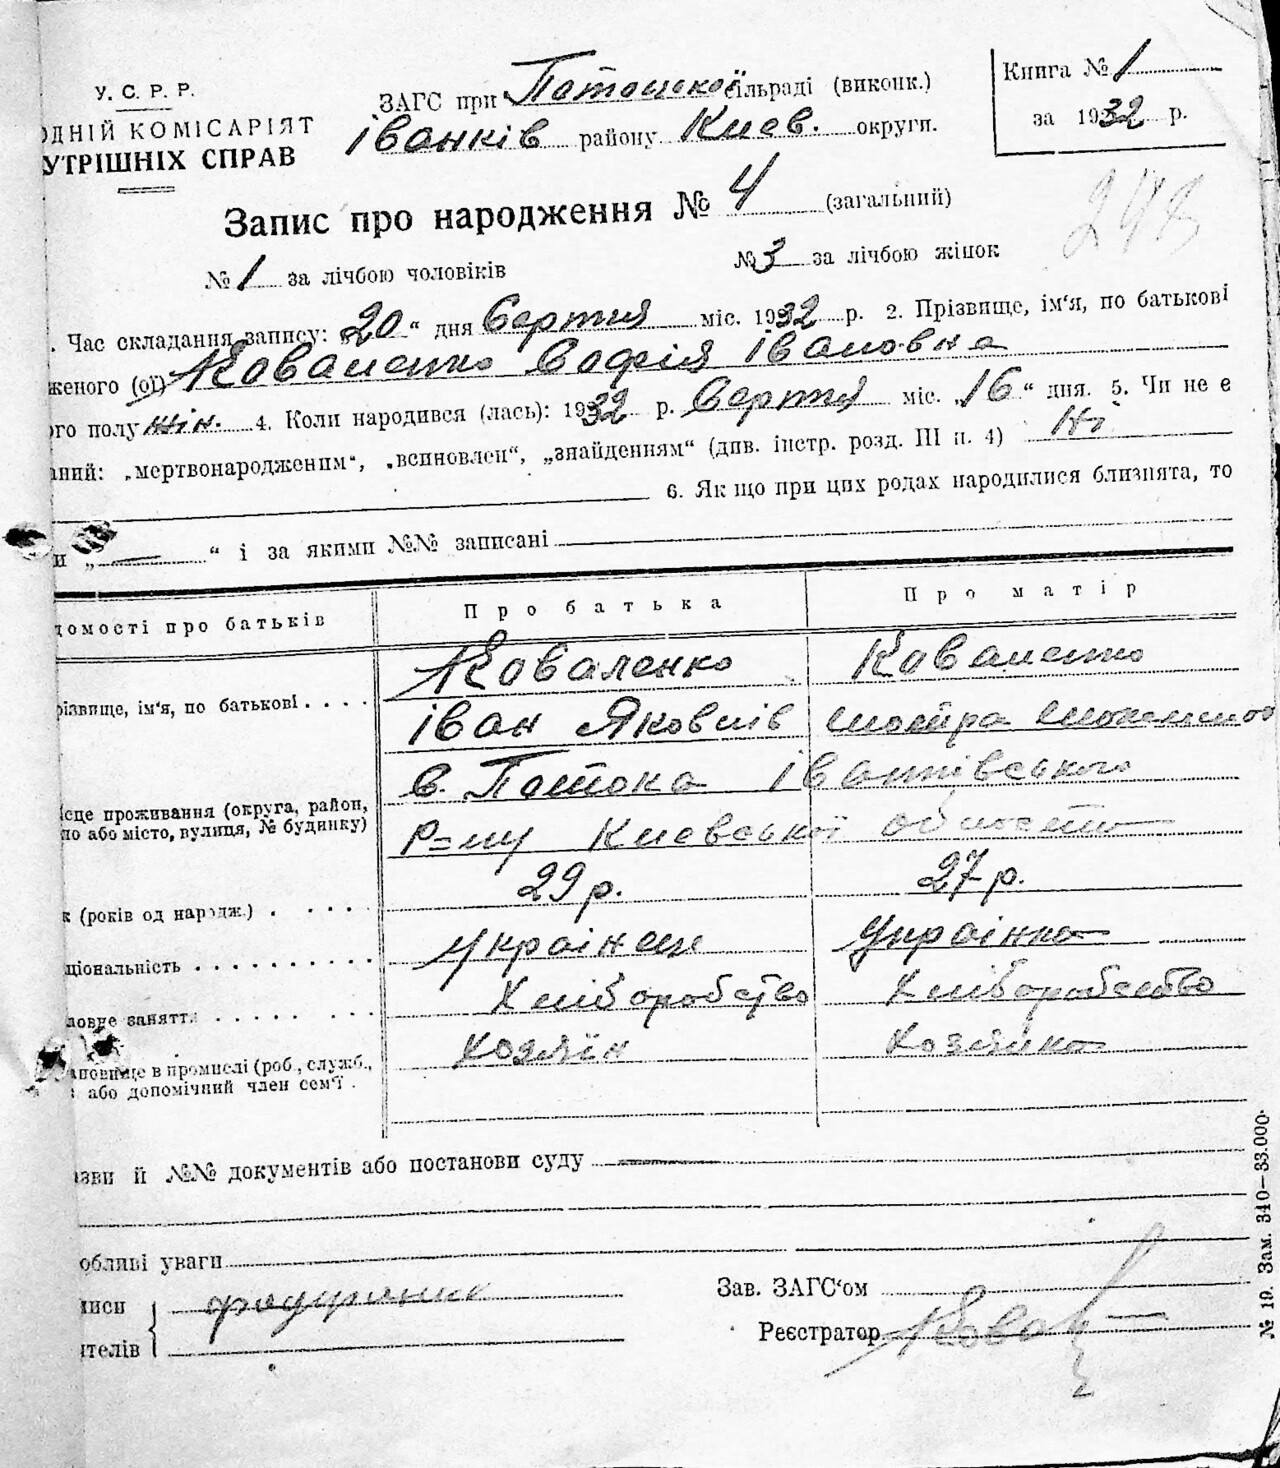 У. С. Р. Р.
ОДНІЙ КОМІСАРІЯТ
УТРІШНІХ СПРАВ
ЗАГС при Потоцкої сільраді (виконк.)
іванків району Києв. округи.
Книга № 1
за 1932 р.
Запис про народження № 4 (загальний)
248
№ 1 за лічбою чоловіків № 3 за лічбою жінок
. Час складання запису: 20 “ дня Серпня міс. 1932 р. 2. Прізвище, ім‘я, по батькові
женого (ої) Коваленко Софія Івановна
го полу жін. 4. Коли народився (лась): 1932 р. Серпня міс. „16“ дня. 5. Чи не є
аний: „мертвонародженим“, „всиновлен“, „знайденням“ (див. інстр. розд. III п. 4) Ні
6. Якщо при цих родах народилися близнята, то
и „ — “ і за якими №№ записані
домості про батьків Про батька Про матір
різвище, ім‘я, по батькові . . . . Коваленко Коваленко
іван Яковлів
ісце проживання (округа, район, в. Потока Іванківського
ло або місто, вулиця, № будинку) р=ну Киевської области
к (років од народж.) . . . . . 29 р. 27 р.
ціональність . . . . . . . . . . українец Українка
ловне заняття . . . . . . . . . Хліборобство Хліборобство
ановище в промислі (роб., служб., хозяїн хозяйка
або допомічний член сем‘ї .
азви й №№ документів або постанови суду —
обливі уваги
писи
ителів
Зав. ЗАГС‘ом
Реєстратор Кова
№ 19. Зам. 340—33.000.